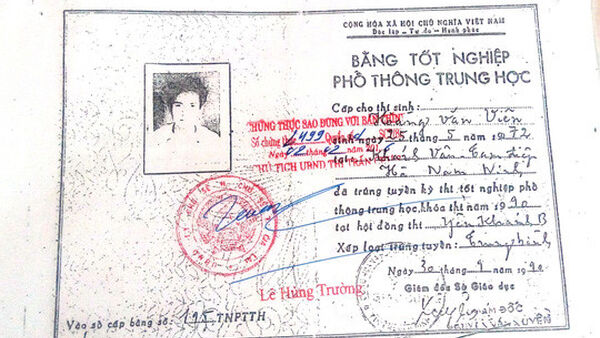 CỘNG HÒA XÃ HỘI CHỦ NGHĨA VIỆT NAM
Độc lập - Tự do - Hạnh phúc
BẰNG TỐT NGHIỆP
PHỔ THÔNG TRUNG HỌC
Cấp cho thí sinh:
Hoàng Văn Viên
sinh ngày 25 5 năm 1972
tại Khánh Vân Tam Điệp
Hà Nam Ninh
đã trúng tuyển kỳ thi tốt nghiệp phổ
thông trung học, khóa thi năm 1990
tại hội đồng thi Yên Khánh B
Xếp loại trúng tuyển: Trung bình
Ngày 30 tháng 9 năm 1990
Giám đốc Sở Giáo dục
GIÁM ĐỐC
CHỨNG THỰC SAO ĐÚNG VỚI BẢN CHÍNH
Số chứng thực 1499 Quyển số SCT/BS
Ngày 02 02
CHỦ TỊCH UBND THỊ TRẤN
Lê Hùng Trường
Vào sổ cấp bằng số: 195 TNPTTH